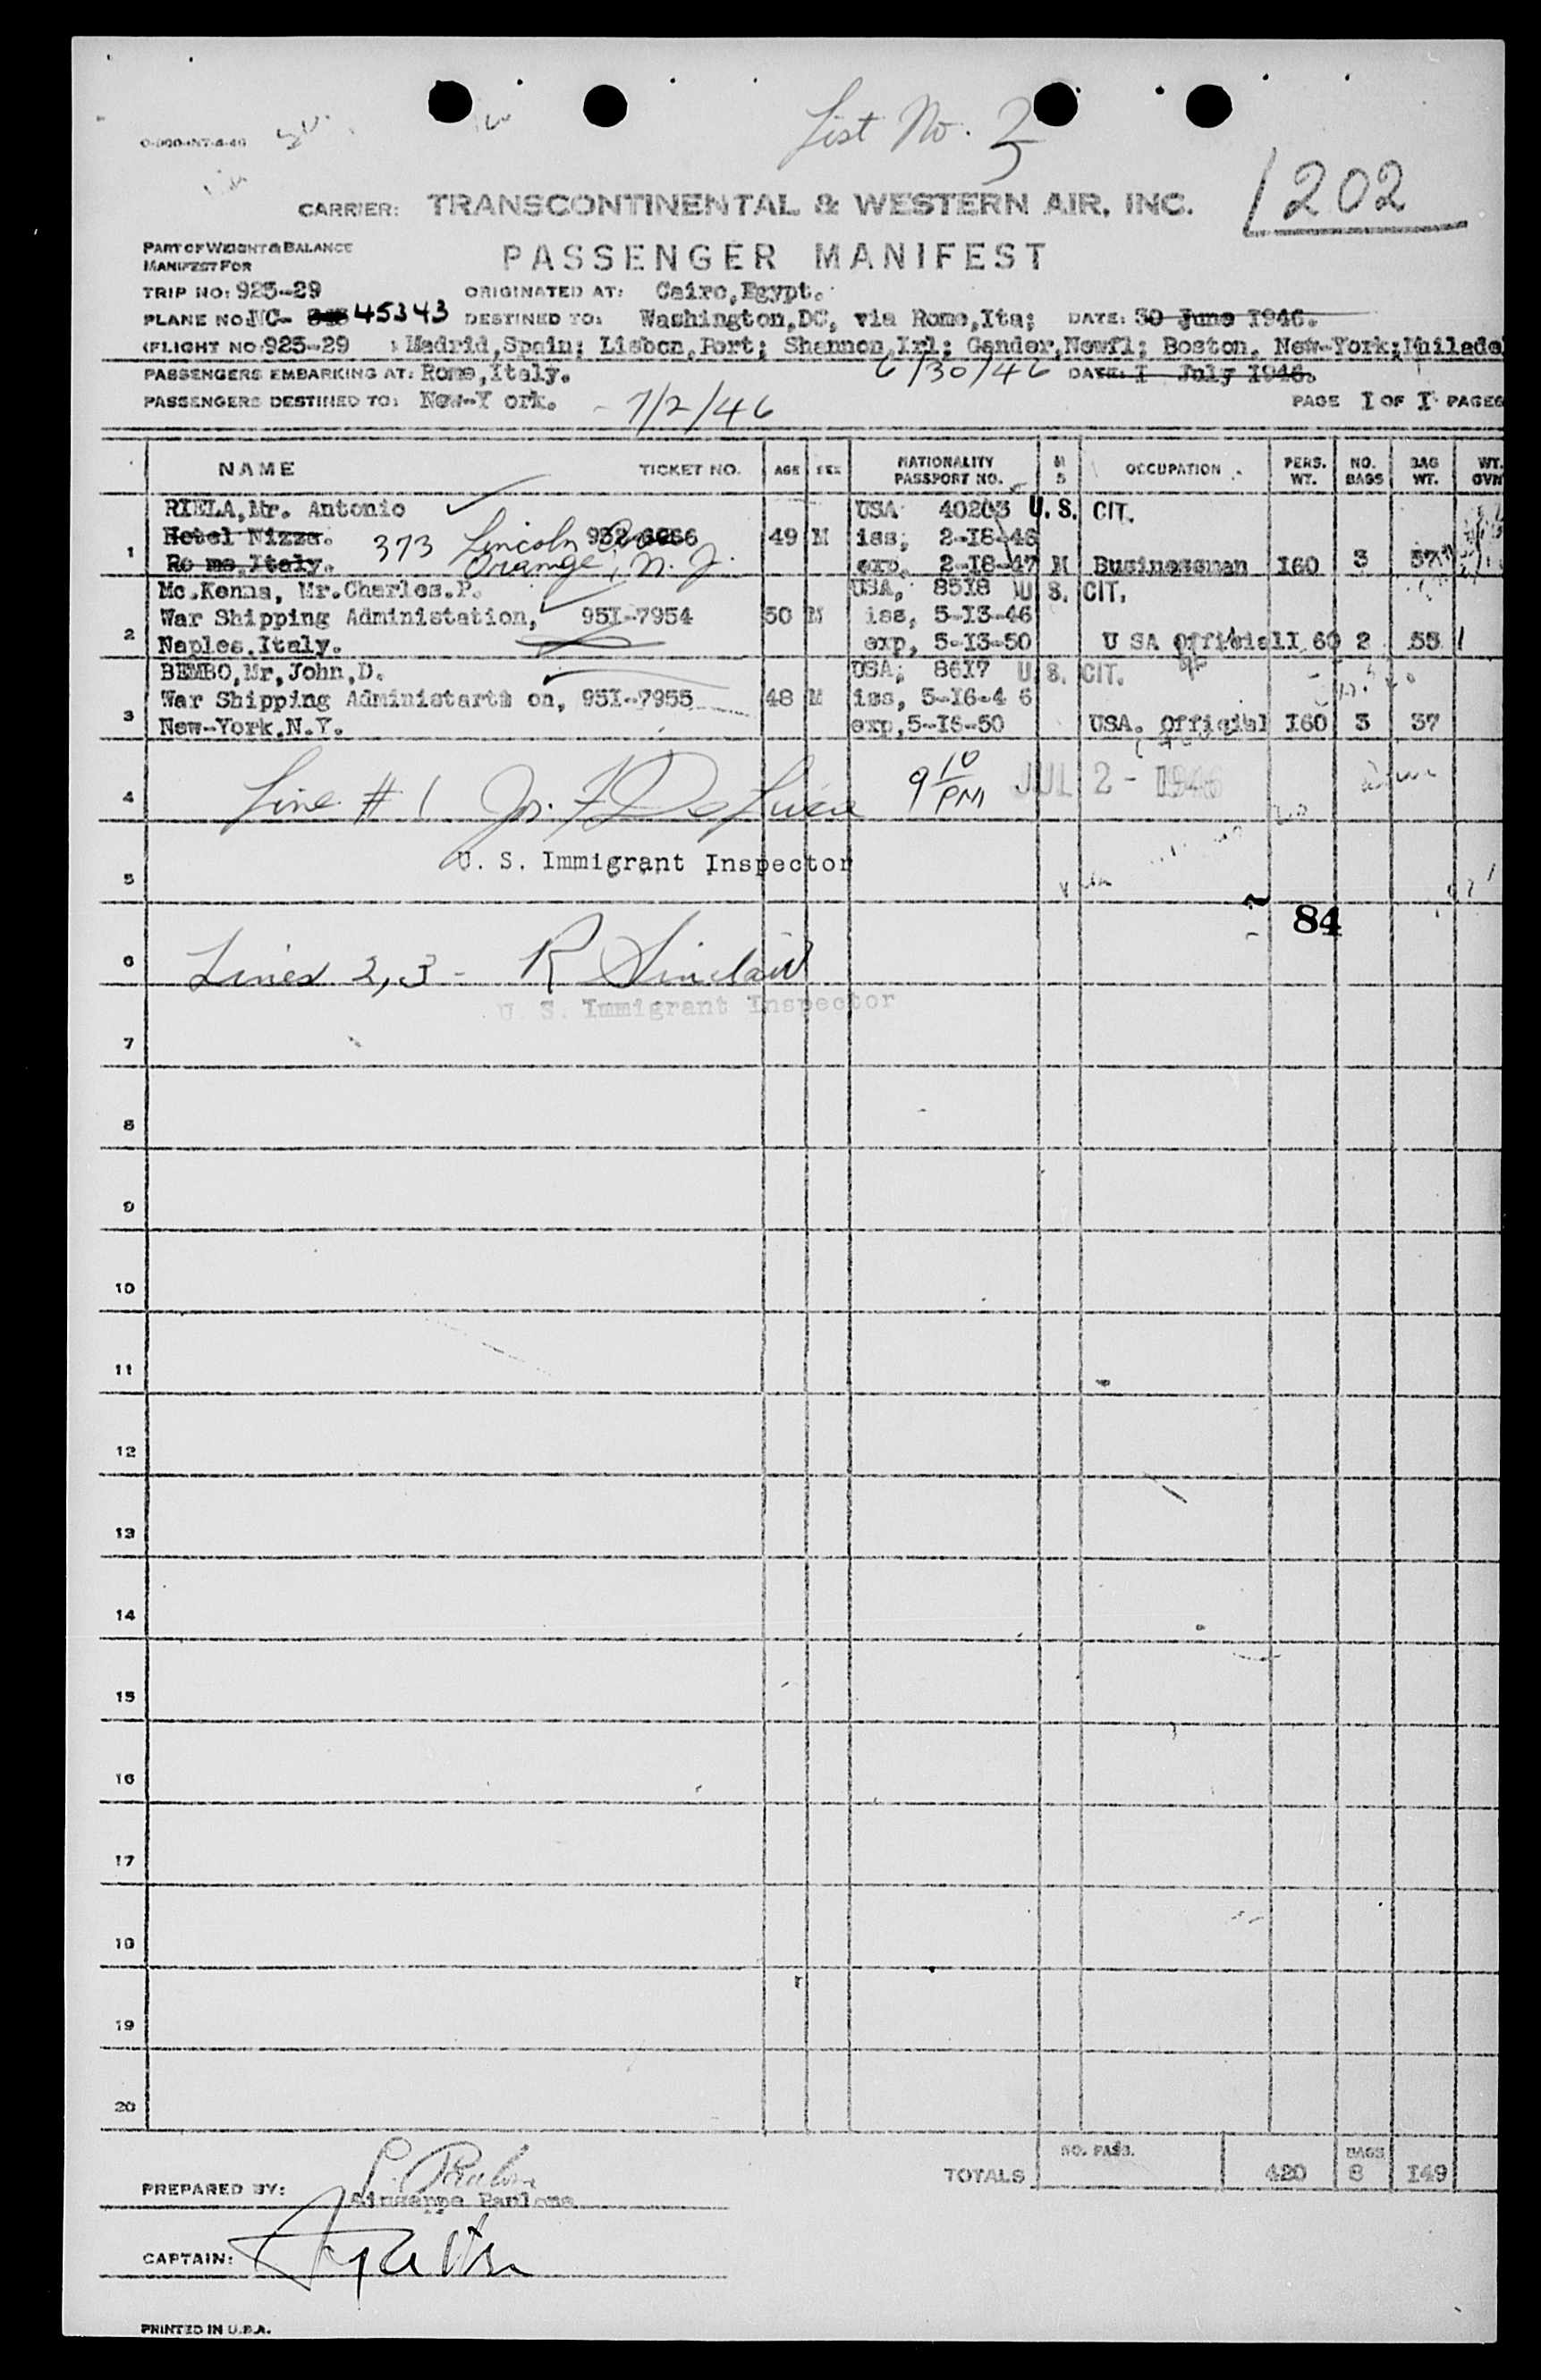 List No. 3
1202
CARRIER: TRANSCONTINENTAL & WESTERN AIR, INC.
PART OF WEIGHT & BALANCE
MANIFEST FOR
PASSENGER MANIFEST
TRIP NO: 925-29 ORIGINATED AT: Cairo,Egypt.
PLANE NO: NC- 45343 DESTINED TO: Washington,DC, via Rome,Ita; DATE: 30 June 1946.
(FLIGHT NO: 925-29 Madrid,Spain; Lisbon,Port; Shannon,Irl; Gander,Newfl; Boston, New-York;Philade
PASSENGERS EMBARKING AT: Rome,Italy. 6/30/46 DATE: I July 1946.
PASSENGERS DESTINED TO: New-Y ork. - 7/2/46 PAGE I OF I PAGES
NAME TICKET NO. AGE SEX NATIONALITY PASSPORT NO. M S OCCUPATION PERS. WT. NO. BAGS BAG WT. WT. OVR
RIELA,Mr. Antonio USA 40203 U. S. CIT.
Hotel Nizza. 373 Lincoln 49 M iss; 2-I8-46
1 Ro me,Italy. Orange, N. J. exp, 2-I8-47 M Businessman I60 3 57
Mc.Kenna, Mr.Charles.P. USA, 85I8 U. S. CIT.
War Shipping Administation, 95I-7954 50 M iss, 5-I3-46
2 Naples.Italy. exp, 5-I3-50 U SA Official I 60 2 55
BEMBO,Mr,John,D. USA; 86I7 U. S. CIT.
War Shipping Administarti on, 95I-7955 48 M iss, 5-I6-4 6
3 New-York.N.Y. exp,5-I5-50 USA. Official I60 3 37
4 Line # 1 9 10 PM JUL 2 - 1946
U. S. Immigrant Inspector
5
84
6 Lines 2,3 - R Sinclair
U. S. Immigrant Inspector
7
8
9
10
11
12
13
14
15
16
17
18
19
20
TOTALS NO. PASS. 420 BAGS 8 I49
PREPARED BY: Giuseppe Paulone
CAPTAIN:
PRINTED IN U.S.A.